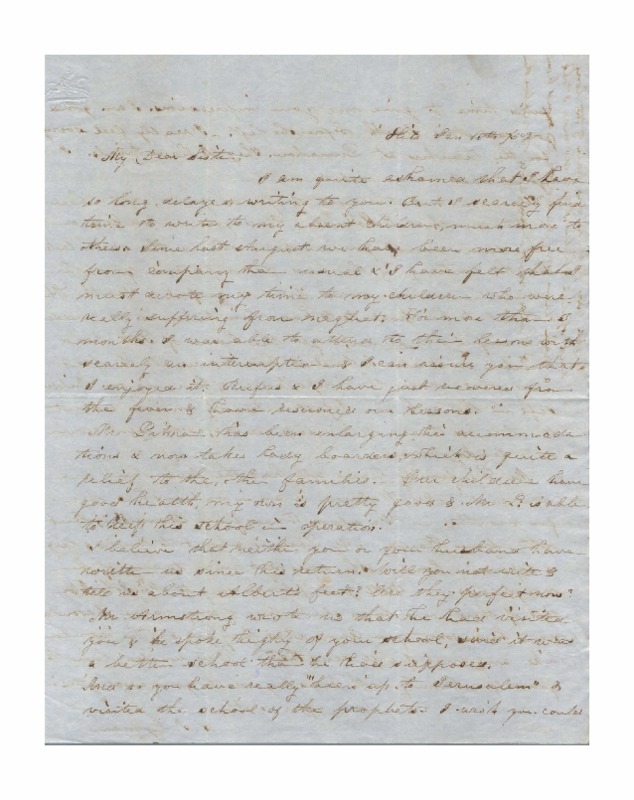 My Dear Sister.
I am quite ashamed that I have
so long delayed writing to you. But I scarcely find
time to write to my absent children, much more to
others. Since last August we have been more free
from company than usual & I have felt that I
must devote my time to my children who were
really suffering from neglect. For more than
months I was able to attend to their lessons with
scarcely an interruption & I can assure you that
I enjoyed it. Rufus & I have just recovered from
the fever & have resumed our lessons.
Mr. has been enlarging his accommoda
tions & now takes Lady boarders which is quite a
relief to the other families. Our children have
good health, my own is pretty good & Mr L. is able
to keep his school in operation.
I believe that neither you or your husband have
written us since his return. Will you not write &
tell us about Albert's feet? Are they perfect now?
Mr Armstrong wrote us that he had visited
you & he spoke highly of your school, said it was
a better school than he had supposed.
And so you have really "been up to Jerusalem" &
visited the school of the prophets. I wish you could